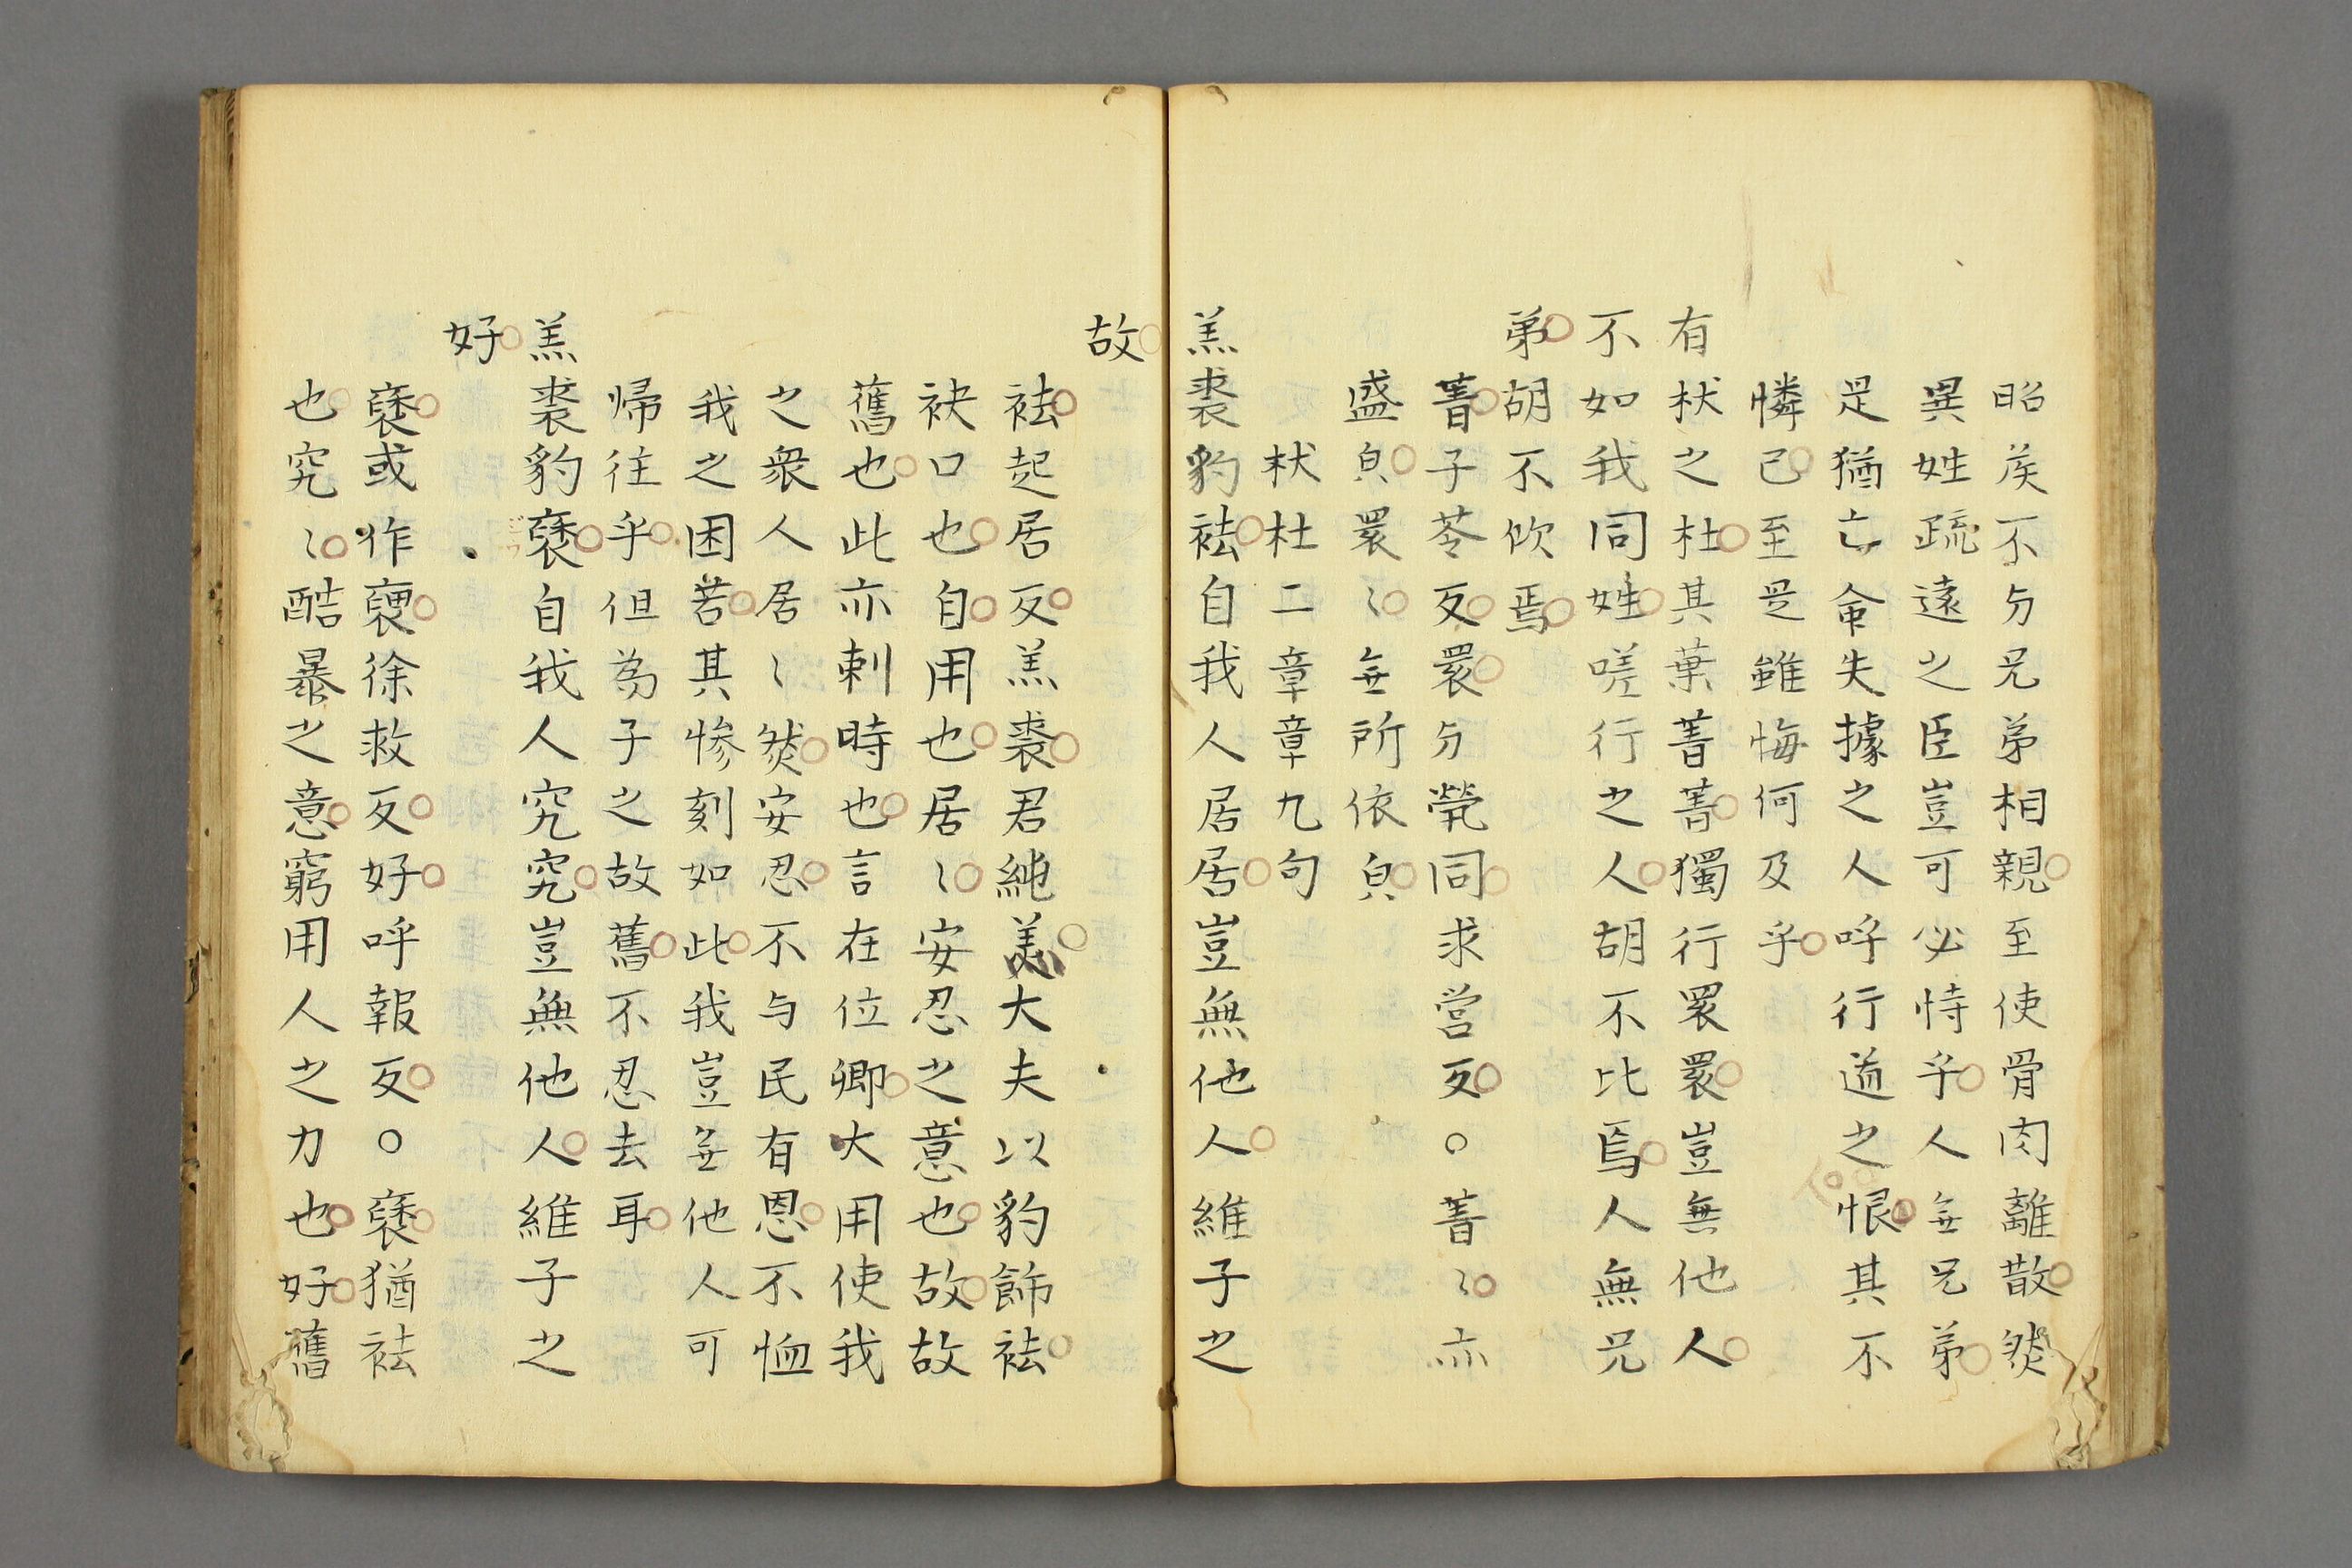 昭矦不与兄弟相親至使骨肉離散然
異姓疏遠之臣豈可必恃乎人無兄弟
是猶亡命失據之人呼行道之恨其不
憐已至是雖悔何及乎
有杕之杜其葉菁菁獨行睘睘豈無他人
不如我同姓嗟行之人胡不比焉人無兄
弟胡不佽焉
菁子苓反睘与煢同求営反○菁〻亦
盛皃睘〻無所依皃
杕杜二章章九句
羔裘豹袪自我人居居豈無他人維子之
故
袪起居反羔裘君純羔大夫以豹飾袪
袂口也自用也居〻安忍之意也故故
舊也此亦刺時也言在位卿大用使我
之衆人居〻然安忍不与民有恩不恤
我之困苦其惨刻如此我豈無他人可
帰往乎但為子之故舊不忍去耳
羔裘豹褎自我人究究豈無他人維子之
好
褎或作褏徐救反好呼報反○褎猶袪
也究〻酷暴之意窮用人之力也好舊